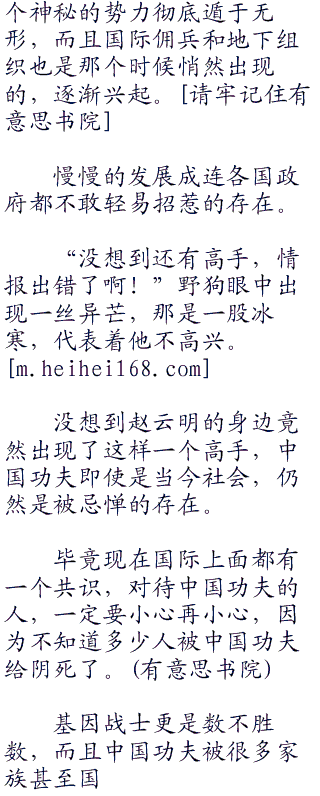 个神秘的势力彻底遁于无
形，而且国际佣兵和地下组
织也是那个时候悄然出现
的，逐渐兴起。[请牢记住有
意思书院]
慢慢的发展成连各国政
府都不敢轻易招惹的存在。
“没想到还有高手，情
报出错了啊！”野狗眼中出
现一丝异芒，那是一股冰
寒，代表着他不高兴。
[m.heihei168.com]
没想到赵云明的身边竟
然出现了这样一个高手，中
国功夫即使是当今社会，仍
然是被忌惮的存在。
毕竟现在国际上面都有
一个共识，对待中国功夫的
人，一定要小心再小心，因
为不知道多少人被中国功夫
给阴死了。(有意思书院)
基因战士更是数不胜
数，而且中国功夫被很多家
族甚至国